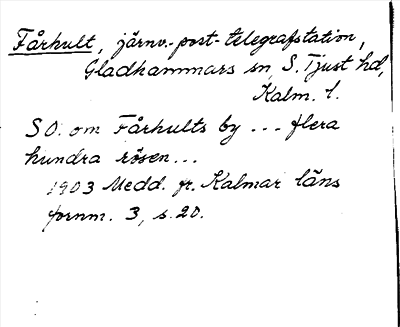 Fårhult, järnv.- post- telegrafstation,
Gladhammars sn, S. Tjust hd,
Kalm. l.
S O. om Fårhults by ... flera
hundra rösen...
1903 Medd. fr. Kalmar läns
fornm. 3, s. 20.